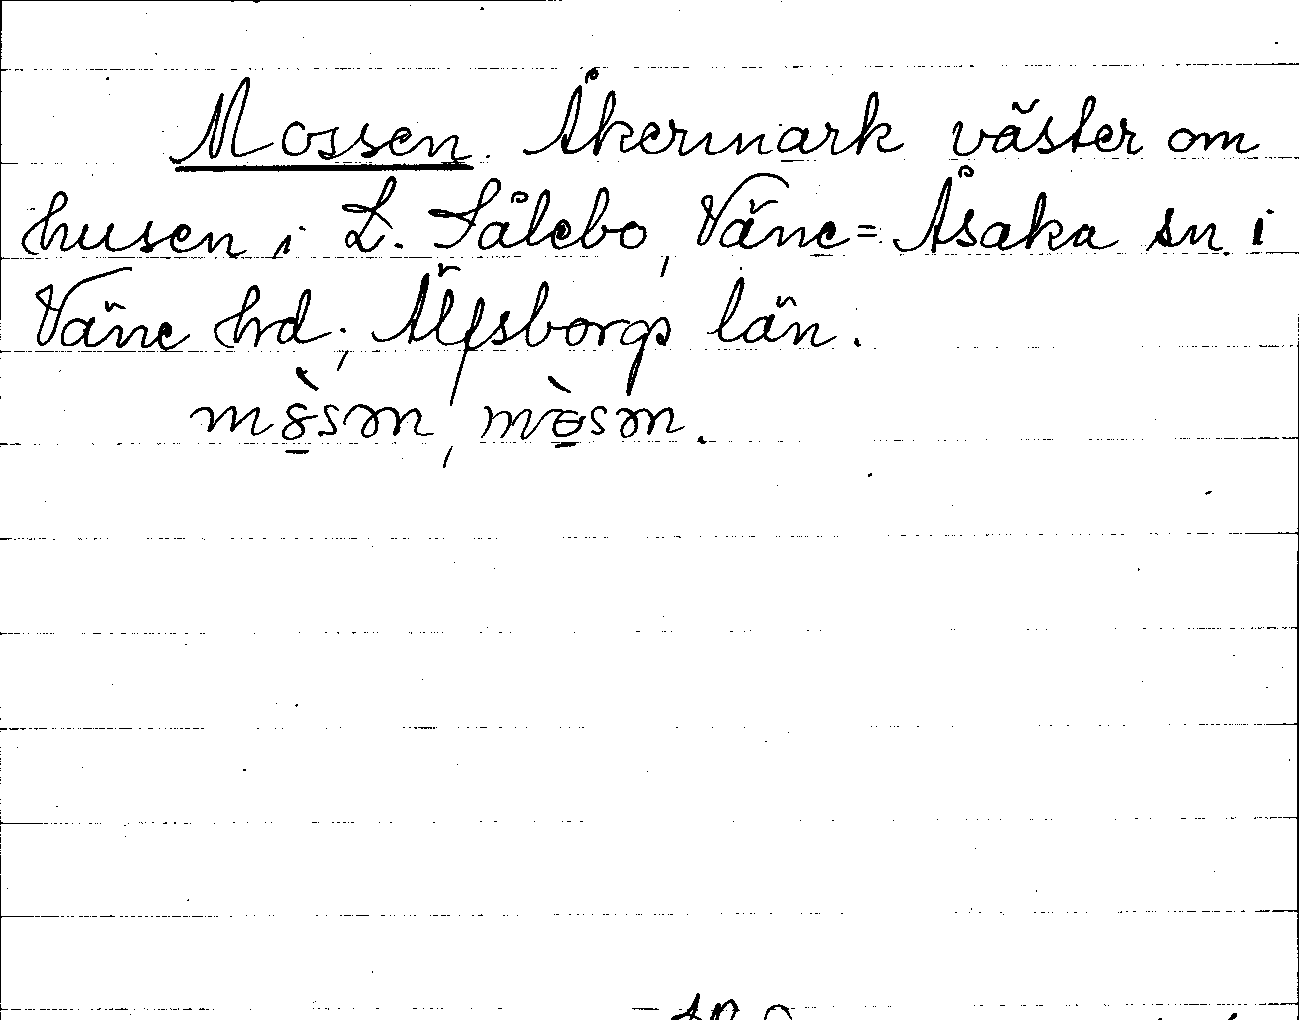 Mossen. Åkermark väster om
husen i L. Sålebo, Väne=Åsaka sn. i
Väne hd, Älfsborgs län.